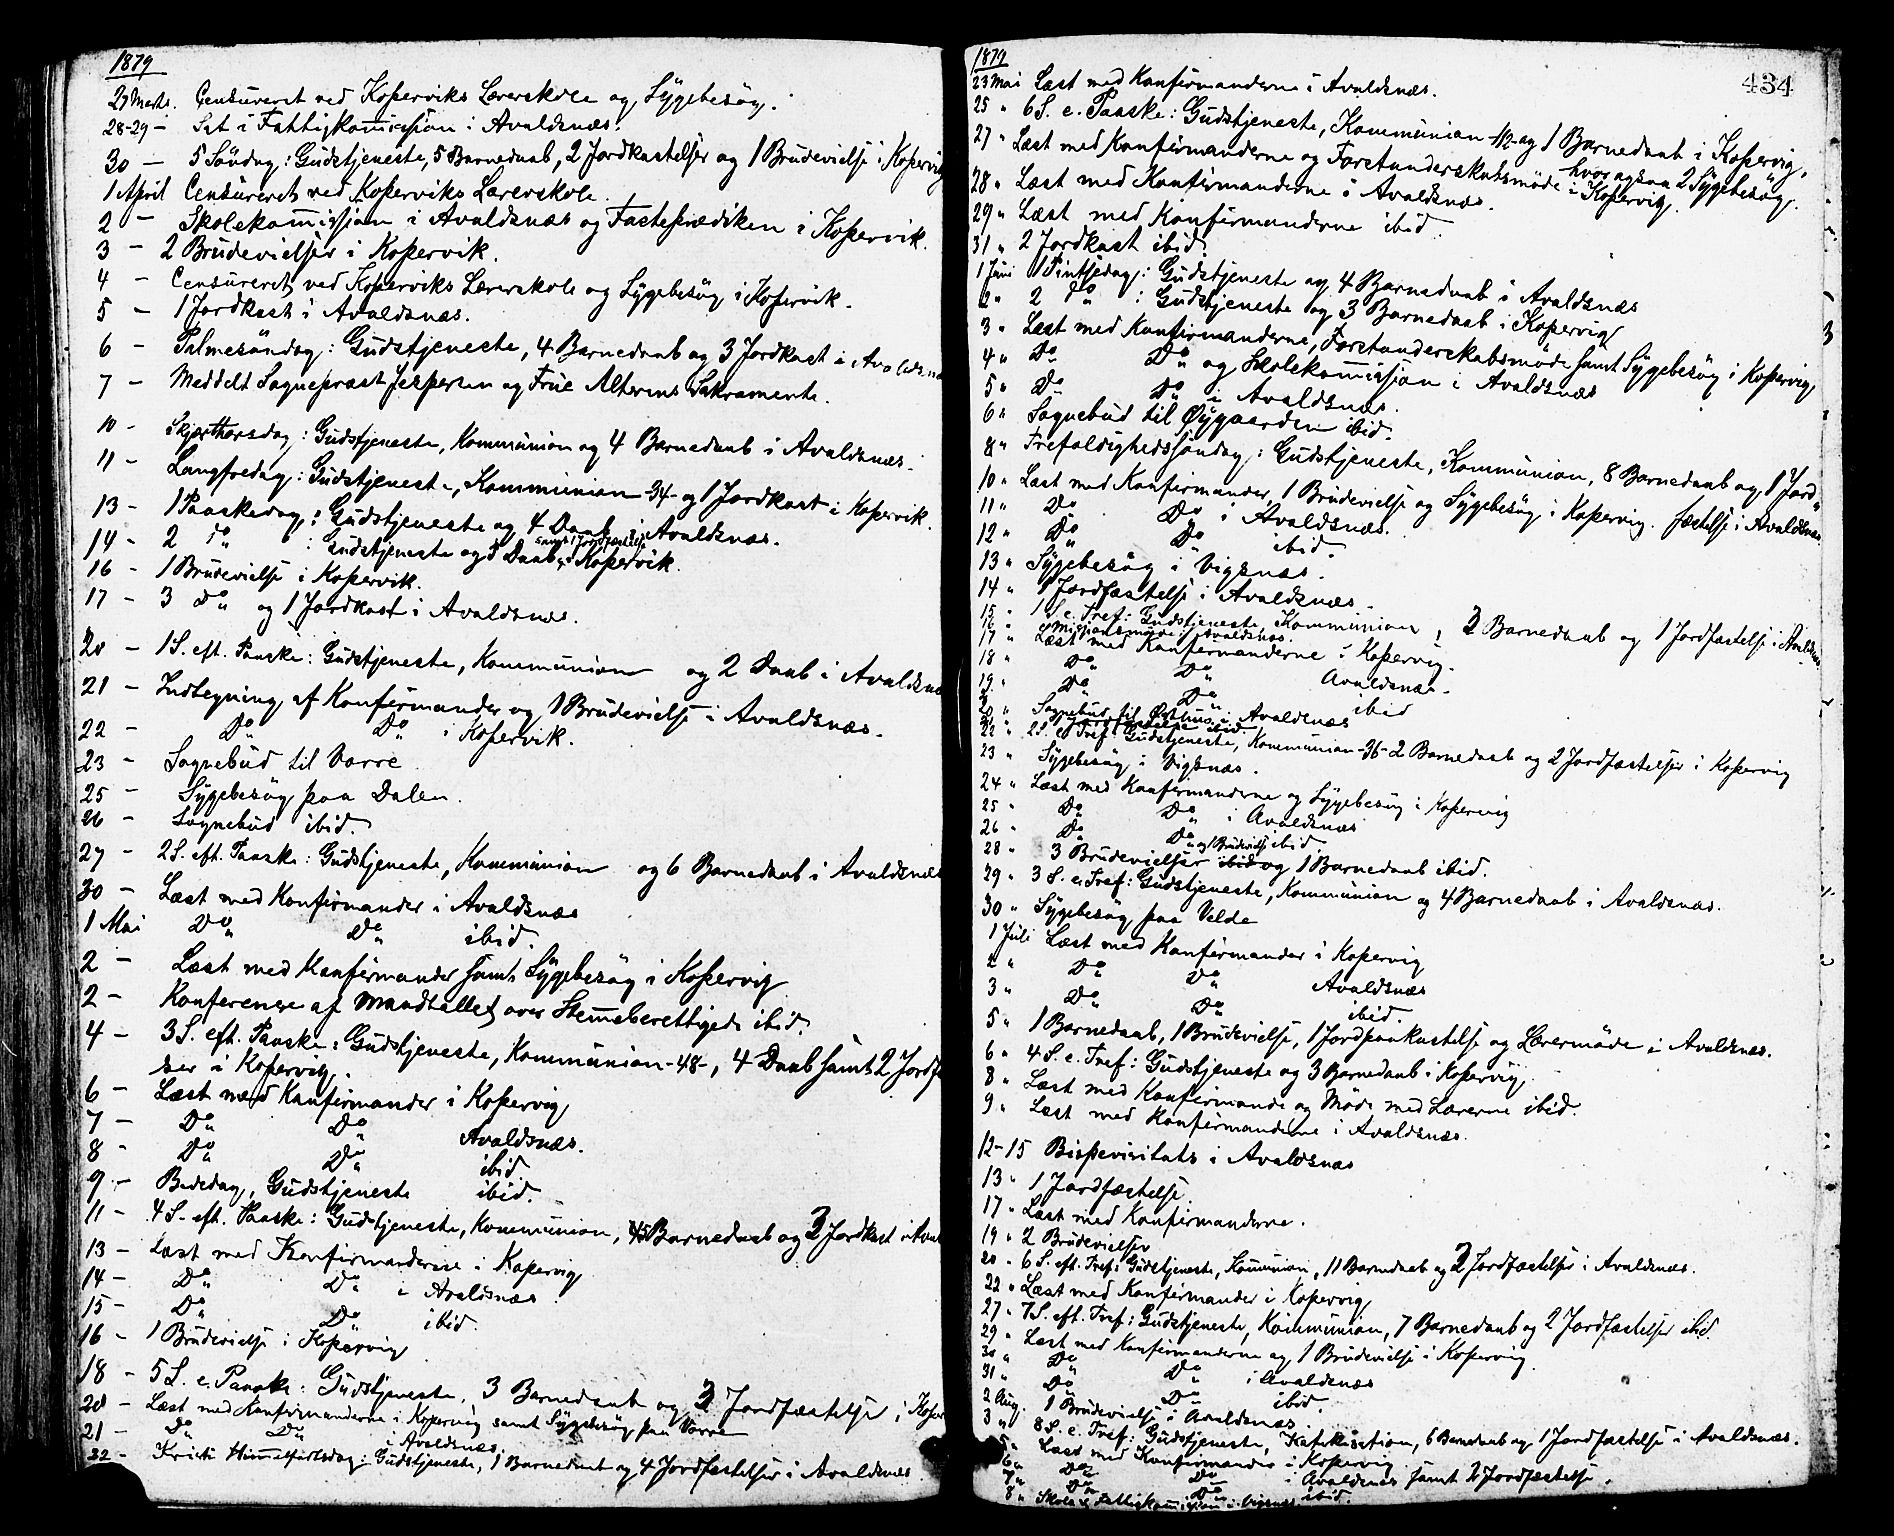 1879
27 Marts. Censureret ved Kopperviks Lærerskole og Sygebesøg.
28-29 – Sat i Fattigkommission i Avaldsnæs.
30 – 5 Søndag: Gudstjeneste, 5 Barnedaab, 2 Jordkastelser og 1 Brudevielse i Kopervig
1 April Censureret ved Koperviks Lærerskole.
2 – Skolekommission i Avaldsnæs og Fasteprædiken i Kopervik.
3 – 2 Brudevielser i Kopervik.
4 – Censureret ved Koperviks Lærerskole og Sygebesøg i Kopervik.
5 – 1 Jordkast i Avaldsnæs.
6 – Palmesøndag: Gudstjeneste, 4 Barnedaab og 3 Jordkast i Avaldsnæ
7 – Meddelt Sognepræst Jespersen og Frue Alterens Sakramente.
10 – Skjærthorsdag: Gudstjeneste, Kommunion og 4 Barnedaab i Avaldsnæs.
11 – Langfredag: Gudstjeneste, Kommunion -34- og 1 Jordkast i Kopervik.
13 – 1 Paaskedag: Gudstjeneste og 4 Daab i Avaldsnæs.
14 – 2 do : Gudstjeneste og 5 Daab samt 1 Jordfæstelse i Kopervik.
16 – 1 Brudevielse i Kopervik.
17 – 3 Do og 1 Jordkast i Avaldsnæs.
20 – 1 S. eft. Paaske: Gudstjeneste, Kommunion og 2 Daab i Avaldsnæ
21 – Indtegning af Konfirmander og 1 Brudevielse i Avaldsnæs.
22 – Do Do i Kopervik.
23 – Sognebud til Vorre
25 – Sygebesøg paa Dalen.
26 – Sognebud ibid.
27 – 2 S. eft. Paaske: Gudstjeneste, Kommunion og 6 Barnedaab i Avaldsnæs
30 – Læst med Konfirmander i Avaldsnæs
1 Mai Do Do ibid.
2 – Læst med Konfirmander samt Sygebesøg i Kopervig
2 – Konference af Mandtallet over Stemmeberettigede ibid.
4 – 3 S. eft. Paaske: Gudstjeneste, Kommunion -48-, 4 Daab samt 2 Jordf
ser i Kopervig.
6 – Læst med Konfirmander i Kopervig
7 – Do Do Avaldsnæs.
8 – Do Do ibid
9 – Bededag, Gudstjeneste ibid.
11 – 4 S. eft. Paaske: Gudstjeneste, Kommunion, 5 Barnedaab og 3 Jordkast i Aval
13 – Læst med Konfirmanderne i Kopervig
14 – Do Do i Avaldsnæs.
15 – Do Do ibid.
16 – 1 Brudevielse i Kopervig
18 – 5 S. e. Paaske: Gudstjeneste, 3 Barnedaab og 2 Jordfæstelse i Koper
20 – Læst med Konfirmanderne i Kopervig samt Sygebesøg paa Vorre
21 – Do Do i Avaldsnæs.
22 – Kristi Himmelfartsdag: Gudstjeneste, 1 Barnedaab og 4 Jordfæstelser i Avaldsnæs
1879
434
23 Mai Læst med Konfirmanderne i Avaldsnæs.
25 " 6 S. e. Paaske: Gudstjeneste, Kommunion og 1 Barnedaab i Kopervig,
hvor ogsaa 2 Sygebesøg.
27 " Læst med Konfirmanderne og Forstanderskabsmøde i Kopervig.
28 " Læst med Konfirmanderne i Avaldsnæs.
29 " Læst med Konfirmanderne ibid.
31 " 2 Jordkast ibid.
1 Juni 1 Pintsedag: Gudstjeneste og 4 Barnedaab i Avaldsnæs
2 " 2 do : Gudstjeneste og 3 Barnedaab i Kopervig
3 " Læst med Konfirmanderne, Forstanderskabsmøde samt Sygebesøg i Kopervig
4 " Do Do og Skolekommission i Avaldsnæs
5 " Do Do i Avaldsnæs.
6 " Sognebud til Øygaarden ibid.
8 " Trefoldighedssøndag: Gudstjeneste, Kommunion, 8 Barnedaab og 1 Jord
fæstelse i Avaldsnæs
10 " Læst med Konfirmander, 1 Brudevielse og Sygebesøg i Kopervig.
11 " Do Do i Avaldsnæs.
12 " Do Do ibid.
13 " Sygebesøg i Vigsnæs.
14 " 1 Jordfæstelse i Avaldsnæs
15 " 1 S. e. Tref: Gudstjeneste, Kommunion, 2 Barnedaab og 1 Jordfæstelse i Avaldsnæs
16 " Missionsmøde i Avaldsnæs.
17 " Læst med Konfirmanderne i Kopervig.
18 " Do Do Avaldsnæs.
19 " Do Do ibid
20 " Sognebud til i Avaldsnæs
21 " 1 Jordfæstelse ibid.
22 " 2 S. e Tref: Gudstjeneste, Kommunion -36- 2 Barnedaab og 2 Jordfæstelser i Kopervig
23 " Sygebesøg i Vigsnæs.
24 " Læst med Konfirmanderne og Sygebesøg i Kopervig
25 " Do Do i Avaldsnæs
26 " Do Do og 1 Brudevielse ibid.
28 " 3 Brudevielser ibid og 1 Barnedaab ibid.
29 " 3 S. e. Tref: Gudstjeneste, Kommunion og 4 Barnedaab i Avaldsnæs.
30 " Sygebesøg paa Velde
1 Juli Læst med Konfirmander i Kopervig
2 " Do Do Avaldsnæs
3 " Do Do ibid.
5 " 1 Barnedaab, 1 Brudevielse, 1 Jordpaakastelse og Lærermøde i Avaldsnæs.
6 " 4 S. e. Tref: Gudstjeneste og 3 Barnedaab i Kopervig
8 " Læst med Konfirmande og Møde med Lærerne ibid.
9 " Læst med Konfirmanderne i Avaldsnæs.
12-15 Bispevisitats i Avaldsnæs
13 " 1 Jordfæstelse.
17 " Læst med Konfirmanderne.
19 " 2 Brudevielser
20 " 6 S. eft. Tref: Gudstjeneste, Kommunion, 11 Barnedaab og 2 Jordfæstelser i Avaldsnæs.
22 " Læst med Konfirmander i Kopervig
27 " 7 S. eft. Tref: Gudstjeneste, Kommunion, 7 Barnedaab og 2 Jordfæstelser ibid.
29 " Læst med Konfirmanderne og 1 Brudevielse i Kopervig
30 " Do Do i Avaldsnæs
31 " Do Do ibid.
2 Aug. 1 Brudevielse i Avaldsnæs.
3 " 8 S. e. Tref: Gudstjeneste, Katekisation, 6 Barnedaab og 1 Jordfæstelse i Avaldsnæs.
5 " Læst med Konfirmander i Kopervig
6 " Do Do i Avaldsnæs samt 2 Jordfæstelse.
7 " Do Do ibid.
8 " Skole & Fattigkommission i Vigsnæs